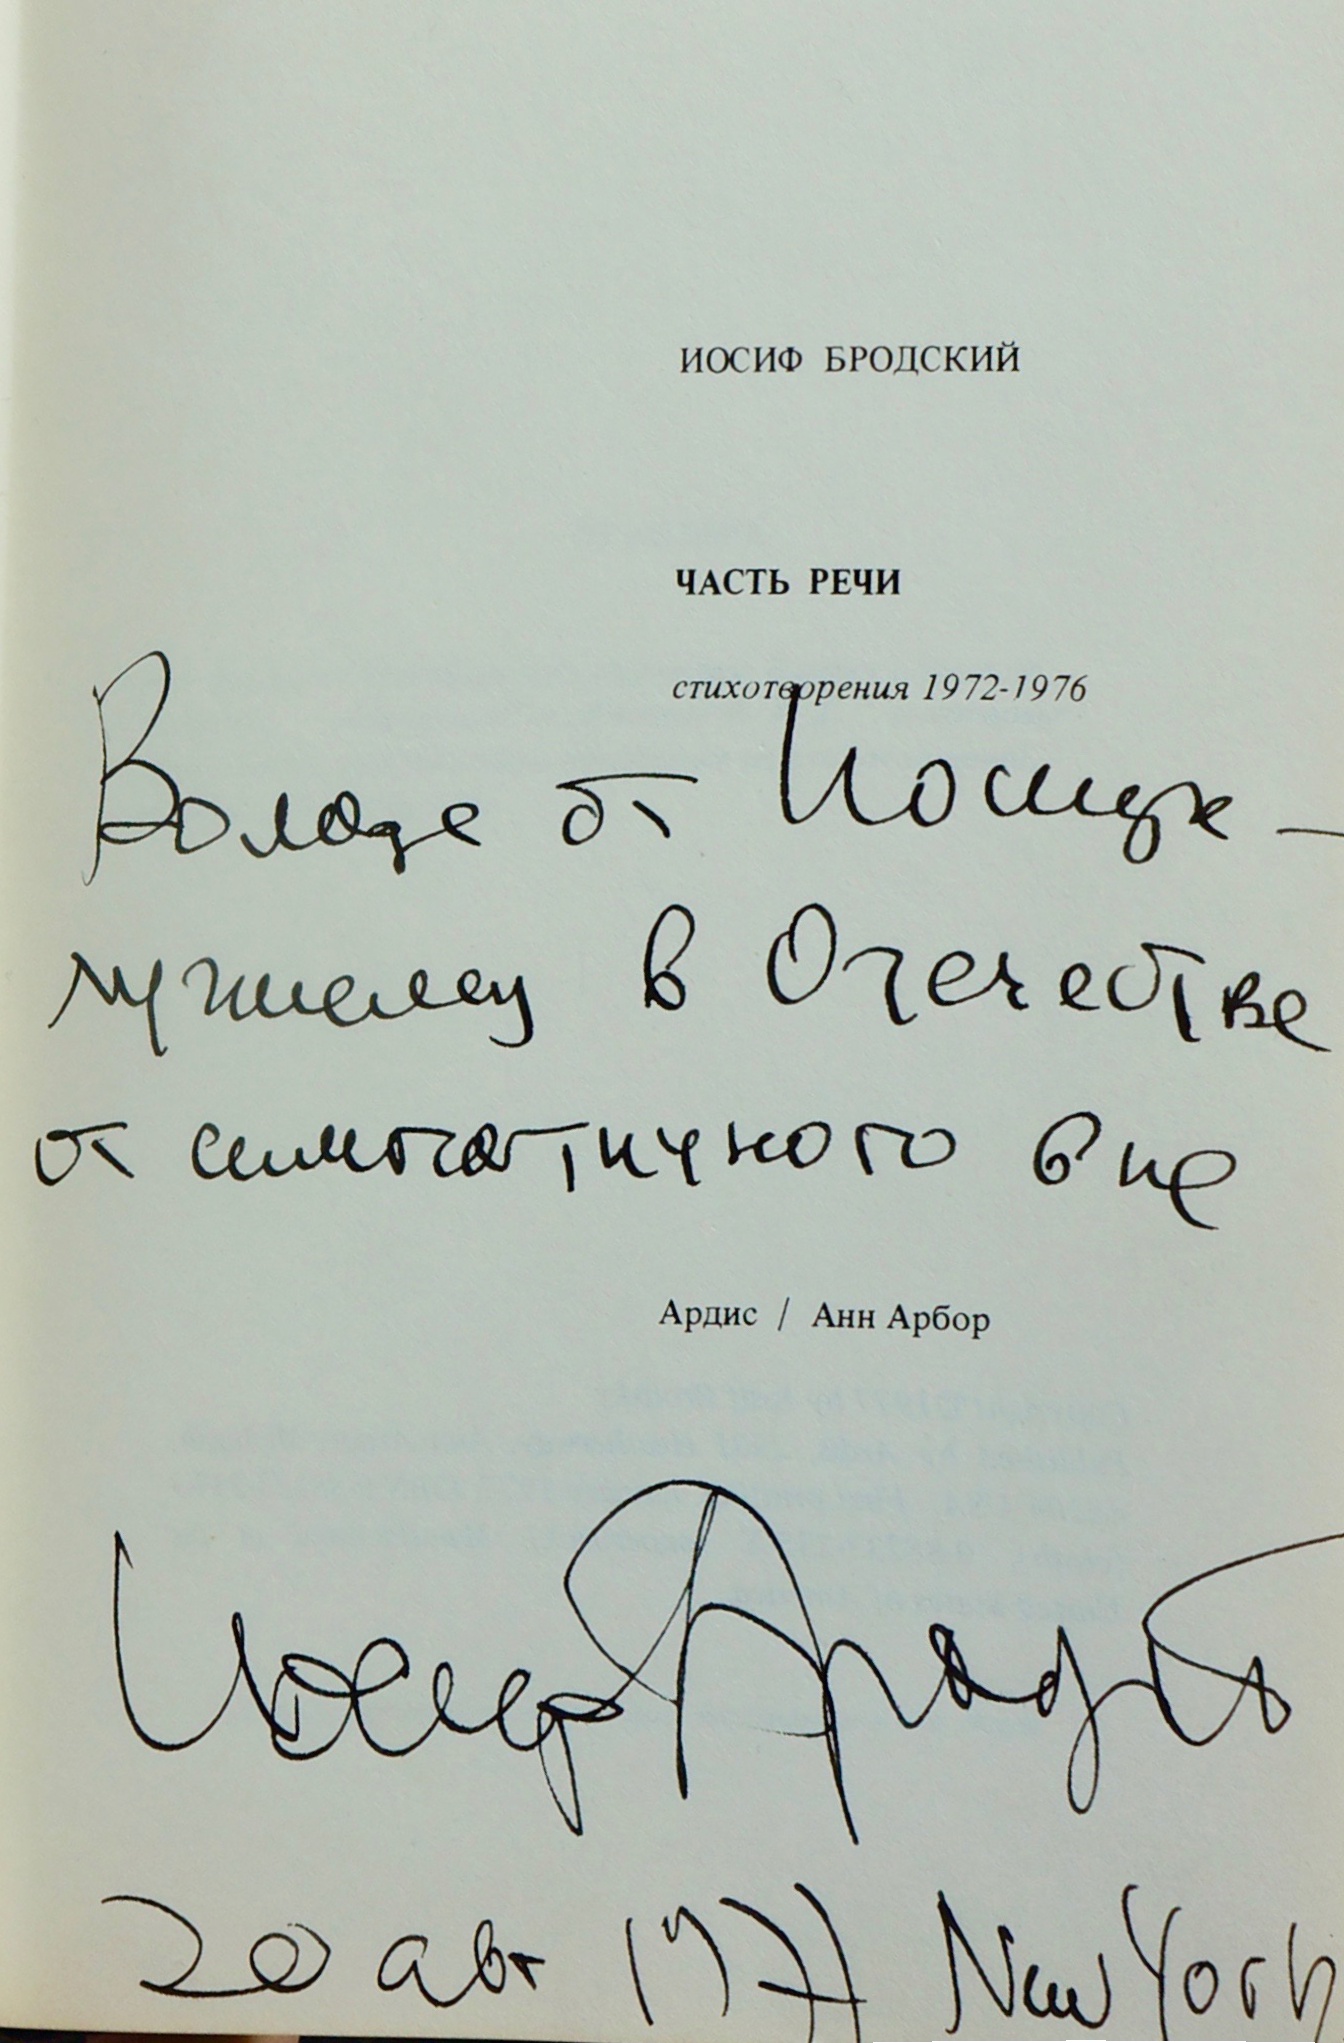 ИОСИФ БРОДСКИЙ
ЧАСТЬ РЕЧИ
стихотворения 1972-1976
Володе от Иосифа —
лучшему в Отечестве
от симпатичного вне
Ардис / Анн Арбор
Иосиф Бродский
20 авг 1977 New York